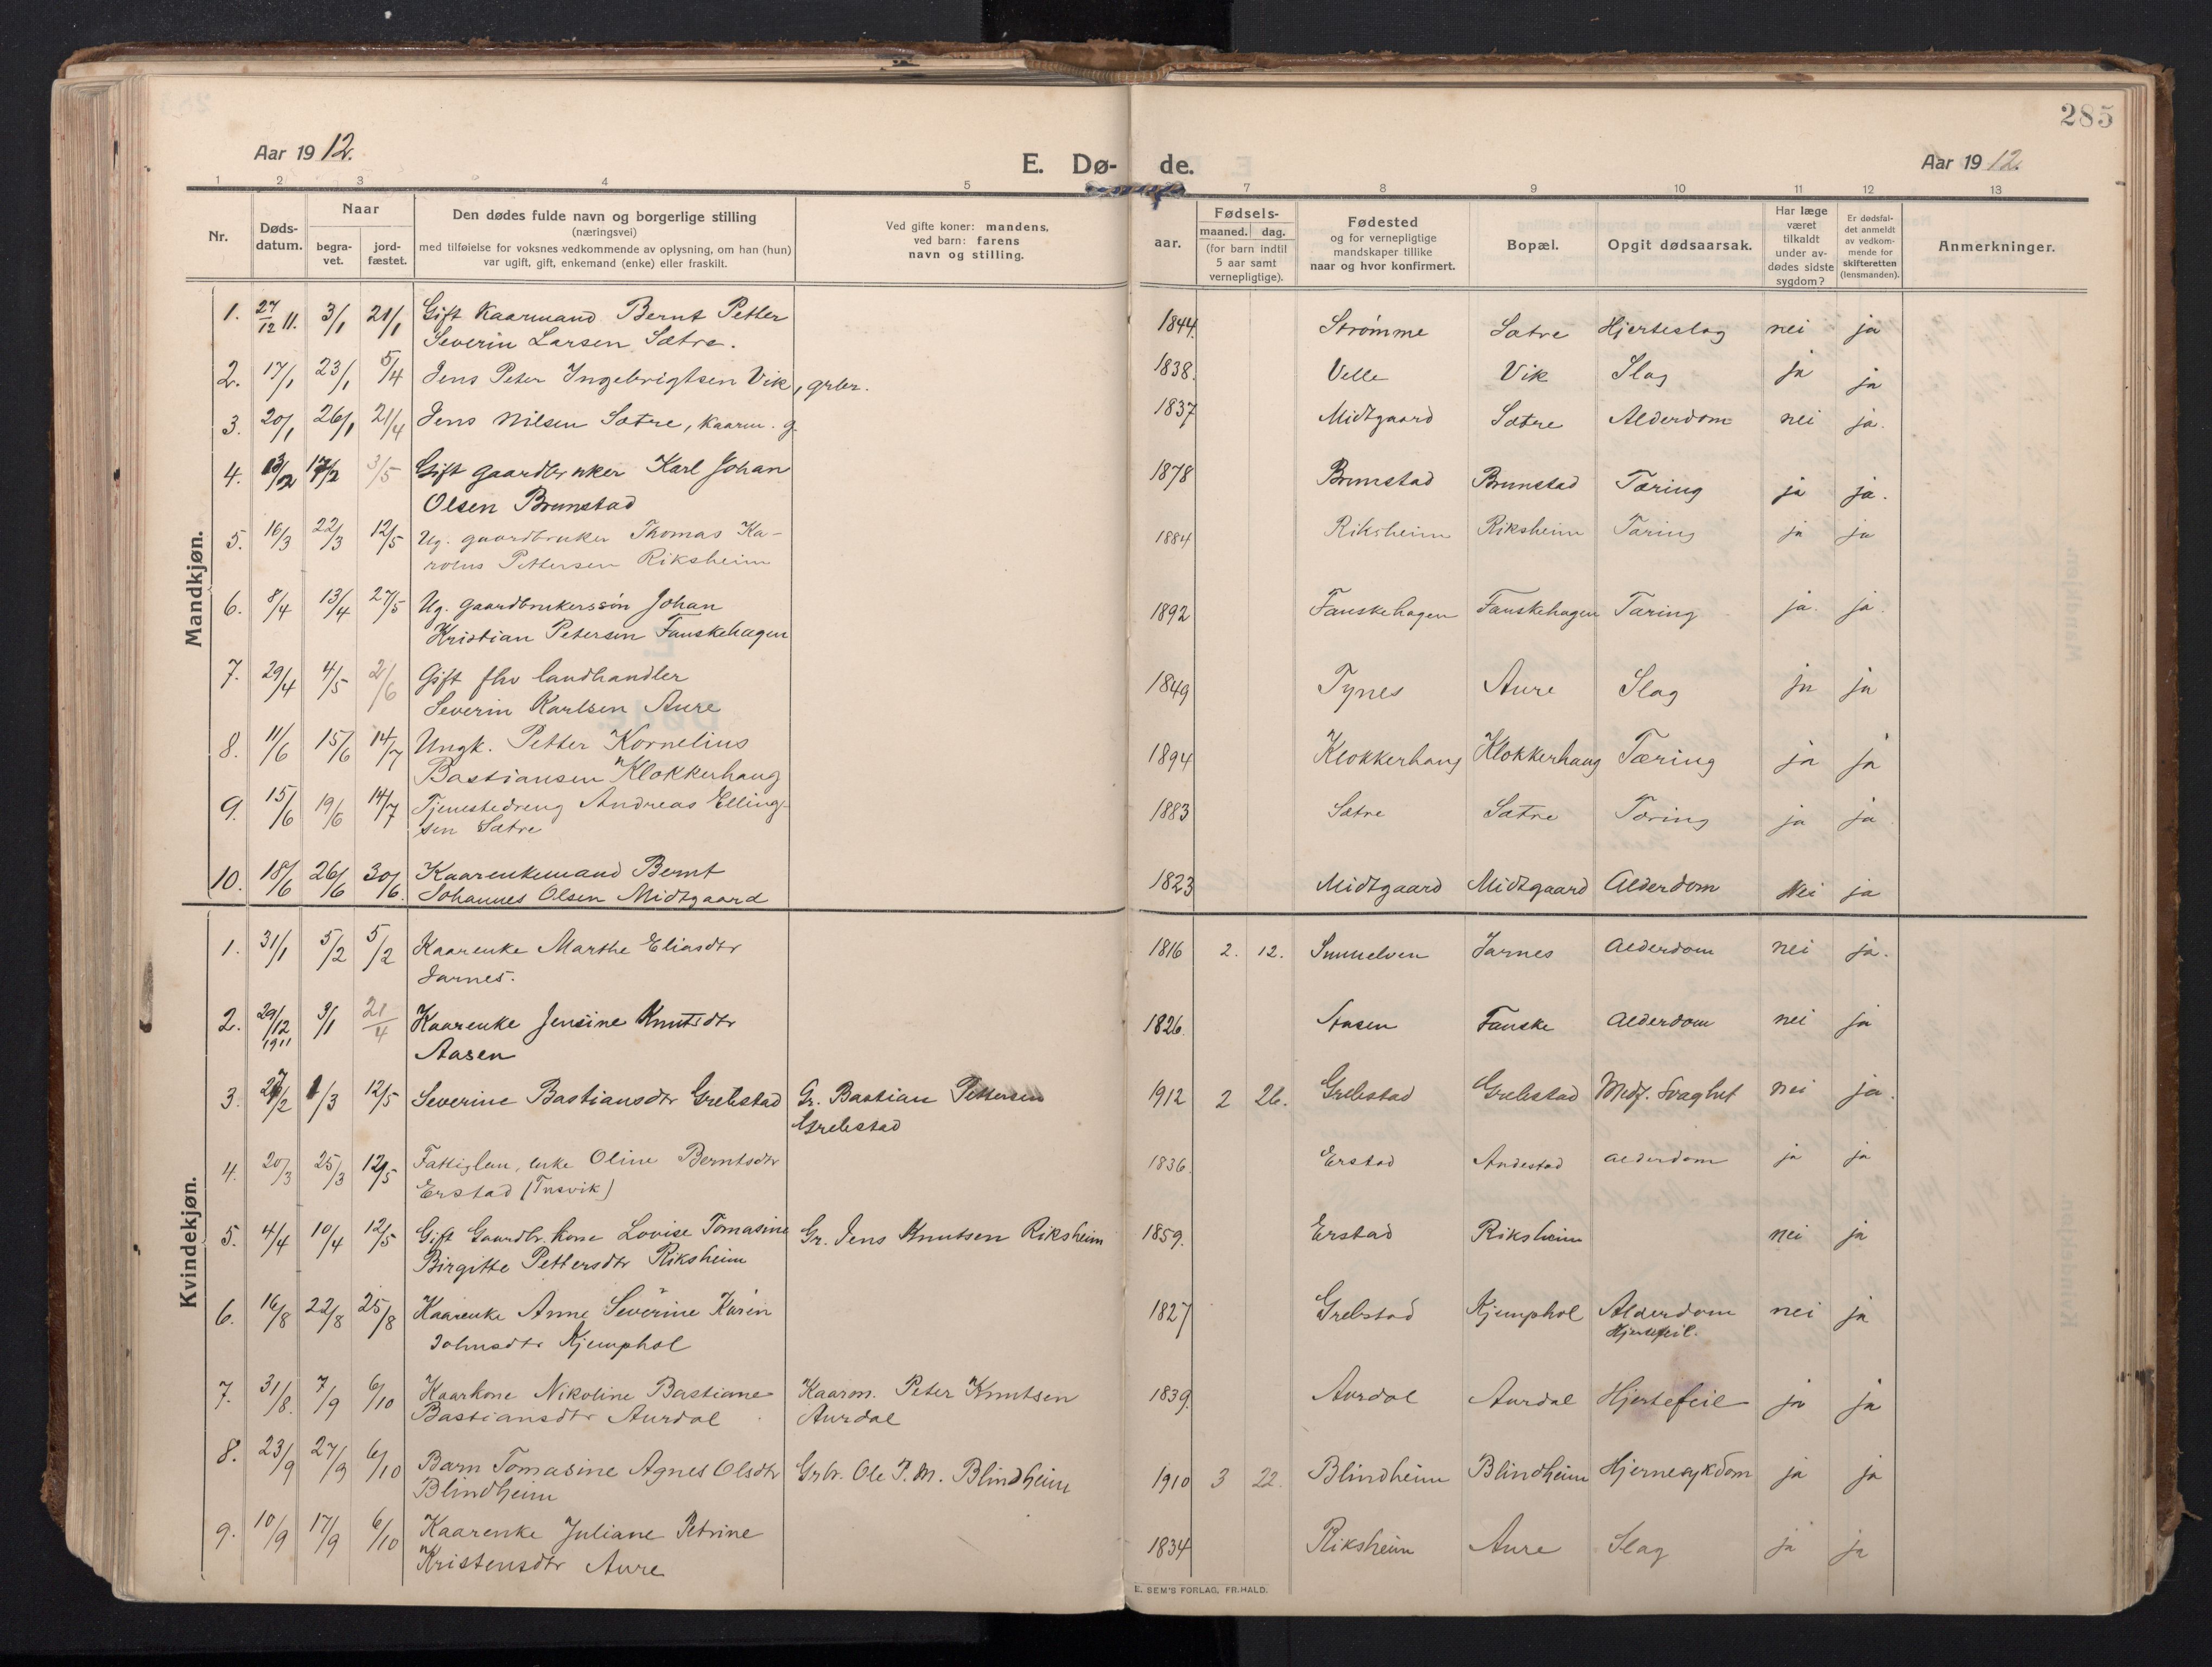 285
Aar 1912.
E. Dø- de.
Aar 1912.
1 2 3 4 5 7 8 9 10 11 12 13
Nr.
Døds-
datum.
Naar
begra-
vet.
jord-
fæstet.
Den dødes fulde navn og borgerlige stilling
(næringsvei)
med tilføielse for voksnes vedkommende av oplysning, om han (hun)
var ugift, gift, enkemand (enke) eller fraskilt.
Ved gifte koner: mandens,
ved barn: farens
navn og stilling.
aar.
Fødsels-
maaned. dag.
(for barn indtil
5 aar samt
vernepligtige).
Fødested
og for vernepligtige
mandskaper tillike
naar og hvor konfirmert.
Bopæl.
Opgit dødsaarsak.
Har læge
været
tilkaldt
under av-
dødes sidste
sygdom?
Er dødsfal-
det anmeldt
av vedkom-
mende for
skifteretten
(lensmanden).
Anmerkninger.
Mandkjøn.
1. 27/12 11. 3/1 21/1 Gift Kaarmand Bernt Petter 1844. Strømme Sætre Hjerteslag nei ja
Severin Larsen Sætre.
2. 17/1 23/1 5/4 Jens Peter Ingebrigtsen Vik, grbr. 1838. Velle Vik Slag ja ja
3. 20/1 26/1 21/4 Jens Nilsen Sætre, Kaarm. g. 1837 Midtgaard Sætre Alderdom nei ja.
4. 13/2 17/2 3/5 Gift gaardbruker Karl Johan 1878 Brunstad Brunstad Tæring ja ja.
Olsen Brunstad
5. 16/3 22/3 12/5 Ug. gaardbruker Thomas Ka- 1884 Riksheim Riksheim Tæring ja ja
rolus Pettersen Riksheim
6. 8/4 13/4 27/5 Ug. gaardbrukerssøn Johan 1892 Fauskehagen Fauskehagen Tæring ja. ja.
Kristian Petersen Fauskehagen
7. 29/4 4/5 2/6 Gift fhv landhandler 1849 Tynes Aure Slag ja ja
Severin Karlsen Aure
8. 11/6 15/6 14/7 Ungk. Petter Kornelius 1894 Klokkerhaug Klokkerhaug Tæring ja ja
Bastiansen Klokkerhaug
9. 15/6 19/6 14/7 Tjenestedreng Andreas Elling- 1883 Sætre Sætre Tæring ja ja
sen Sætre
10. 18/6 26/6 30/6. Kaarenkemand Bernt 1823 Midtgaard Midtgaard Alderdom Nei ja
Johannes Olsen Midtgaard
Kvindekjøn.
1. 31/1 5/2 5/2 Kaarenke Marthe Eliasdtr 1816 2. 12. Sunnelven Jarnes Alderdom nei ja.
Jarnes.
2. 29/12 1911 3/1 21/4 Kaarenke Jensine Knutsdtr 1826. Aasen Fauske Alderdom nei ja
Aasen
3. 27/2 1/3 12/5 Severine Bastiansdtr Grebstad Gr. Bastian Pettersen 1912 2 26. Grebstad Grebstad Medf. Svaghet nei ja.
Grebstad
4. 20/3 25/3 12/5 Fattiglem, enke Oline Berntsdtr 1836. Erstad Andestad Alderdom ja ja
Erstad (Tusvik)
5. 4/4 10/4 12/5 Gift Gaardbr. kone Lovise Tomasine Gr. Jens Knutsen Riksheim 1859. Erstad Riksheim nei ja
Birgitte Pettersdtr Riksheim
6. 16/8 22/8 25/8 Kaarenke Anne Severine Karen 1827 Grebstad Kjemphol Alderdom nei ja
Johnsdtr Kjemphol Hjertefeil.
7. 31/8. 7/9 6/10 Kaarkone Nikoline Bastiane Kaarm. Peter Knutsen 1839. Aurdal Aurdal Hjertefeil ja ja
Bastiansdtr Aurdal Aurdal
8. 23/9 27/9 6/10 Barn Tomasine Agnes Olsdtr Grbr. Ole J. M. Blindheim 1910 3 22. Blindheim Blindheim Hjernesykdom ja ja
Blindheim
9. 10/9 17/9 6/10 Kaarenke Juliane Petrine 1834 Riksheim Aure Slag ja ja
Kristensdtr Aure
E. SEM'S FORLAG, FR.HALD.